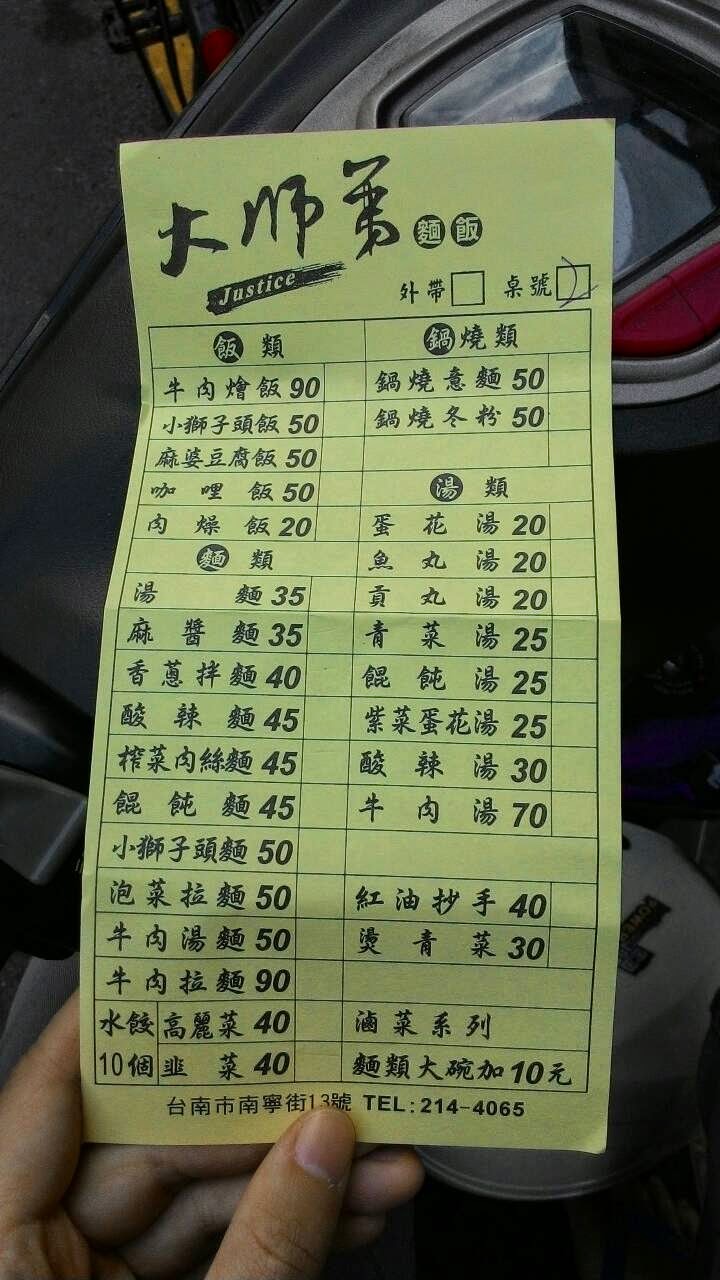 大師弟 麵飯
Justice
外帶 桌號
飯類
牛肉燴飯 90
小獅子頭飯 50
麻婆豆腐飯 50
咖哩飯 50
肉燥飯 20
麵類
湯麵 35
麻醬麵 35
香蔥拌麵 40
酸辣麵 45
榨菜肉絲麵 45
餛飩麵 45
小獅子頭麵 50
泡菜拉麵 50
牛肉湯麵 50
牛肉拉麵 90
水餃 高麗菜 40
10個 韭菜 40
鍋燒類
鍋燒意麵 50
鍋燒冬粉 50
湯類
蛋花湯 20
魚丸湯 20
貢丸湯 20
青菜湯 25
餛飩湯 25
紫菜蛋花湯 25
酸辣湯 30
牛肉湯 70
紅油抄手 40
燙青菜 30
滷菜系列
麵類大碗加10元
台南市南寧街13號 TEL:214-4065